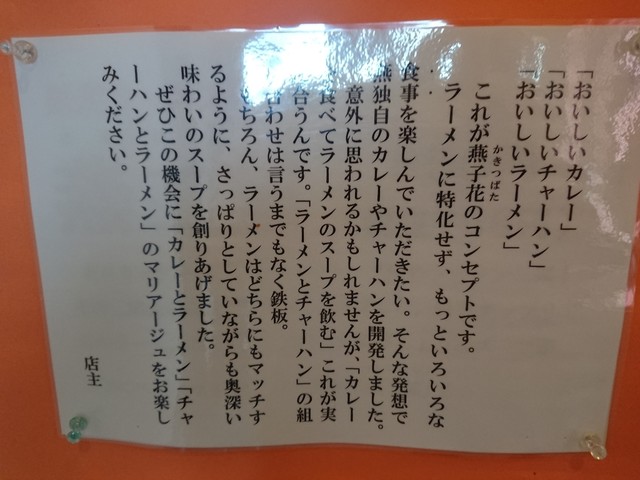 「おいしいカレー」
「おいしいチャーハン」
「おいしいラーメン」
これが燕子花のコンセプトです。
かきつばた
ラーメンに特化せず、もっといろいろな
食事を楽しんでいただきたい。そんな発想で
燕独自のカレーやチャーハンを開発しました。
意外に思われるかもしれませんが、「カレー
食べてラーメンのスープを飲む」これが実
合うんです。「ラーメンとチャーハン」の組
合わせは言うまでもなく鉄板。
もちろん、ラーメンはどちらにもマッチす
るように、さっぱりとしていながらも奥深い
味わいのスープを創りあげました。
ぜひこの機会に「カレーとラーメン」「チャ
ーハンとラーメン」のマリアージュをお楽し
みください。
店主